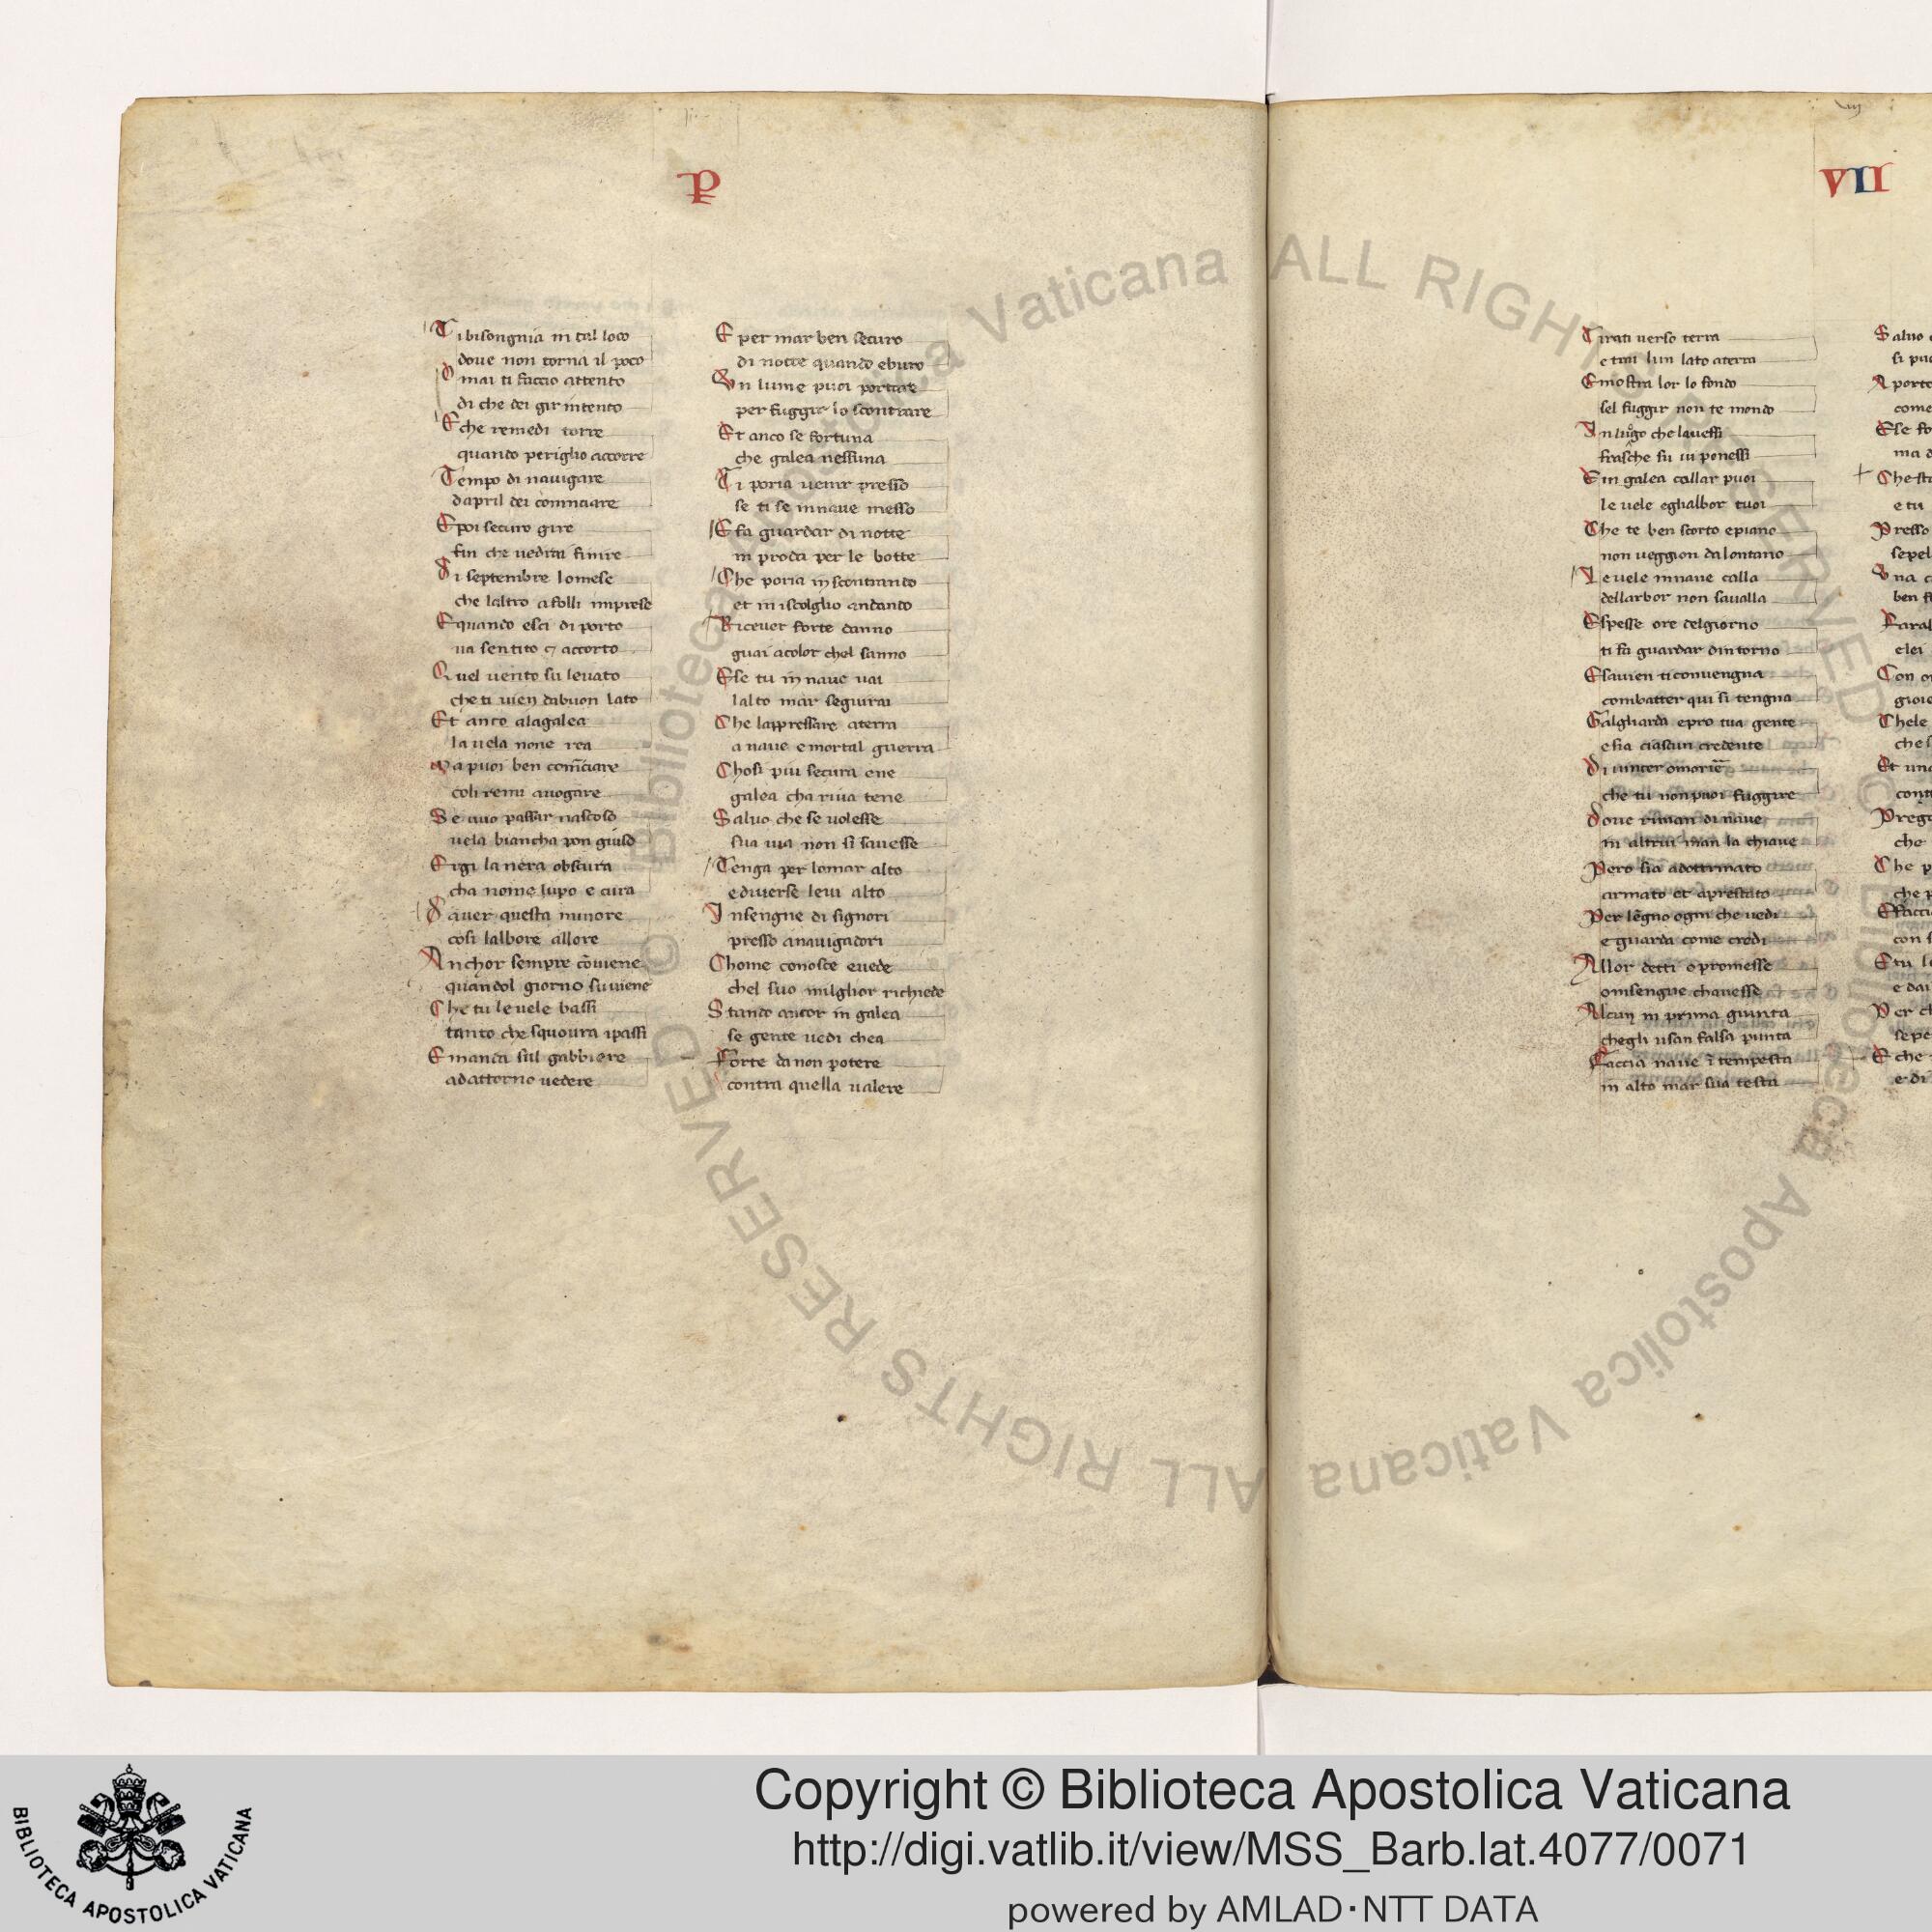 P
Ti bisongnia in tal loco
doue non torna il poco
Omai ti faccio attento
di che dei gir intento
E che remedi torre
quando periglio accorre
Tempo di nauigare
dapril dei cominciare
E poi securo gire
fin che uedrai finire
Di septembre lo mese
che laltro a folli imprese
E quando esci di porto
ua sentito ⁊ accorto
Quel uento su leuato
che ti uien dabuon lato
Et anco alagalea
la uela none rea
Ma puoi ben com̄ciare
coli remi auogare
Se uuo passar nascoso
uela biancha pon giuso
Ergi la nera obscura
cha nome lupo e cura
Dauer questa minore
cosi lalbore allore
Anchor sempre cōuiene
quandol giorno suuiene
Che tu le uele bassi
tanto che squoura ipassi
E manda sul gabbiere
adattorno uedere
E per mar ben securo
di notte quando eburo
Un lume puoi portare
per fuggir lo scontrare
Et anco se fortuna
che galea nessuna
Ti poria uenir presso
se ti se innaue messo
E fa guardar di notte
in proda per le botte
Che poria inscontrando
et in iscolglio andando
Riceuer forte danno
guai acolor chel sanno
E se tu in naue uai
lalto mar seguirai
Che lappressare aterra
a naue e mortal guerra
Chosi piu secura ene
galea cha riua tene
Saluo che se uolesse
sua uia non si sauesse
Tenga per lomar alto
e diuerse leui alto
Insengne di signori
presso anauigadori
Chome conosce euede
chel suo milghor richiede
Stando ancor in galea
se gente uedi chea
Forte da non potere
contra quella ualere
VII
Tirati uerso terra
e trai lun lato aterra
E mostra lor lo fondo
sel fuggir non te mondo
In luogo che lauessi
frasche su ui ponessi
E in galea callar puoi
le uele eghalbor tuoi
Che te ben scorto epiano
non ueggion da lontano
Le uele innaue calla
dellarbor non saualla
E spesse ore delgiorno
ti fa guardar dintorno
E sauien ti conuengna
combatter qui si tengna
Galgliarda epro tua gente
e sia ciascun credente
Di uincer omorire
che tu non puoi fuggire
Doue riman di naue
in altrui man la chiaue
Pero sia adottrinato
armato et aprestato
Per lengno ogni che uedi
e guarda come credi
Allor detti o promesse
o insengne chauesse
Alcun in prima giunta
chegli usan falsa punta
Faccia naue ī tempesta
in alto mar sua testa
Saluo
si pu
A porto
come
E se fo
ma d
Che sta
e tu
Presso
sepel
Una c
ben f
Farai
e lei
Con o
gioie
Chele
che s
Et una
cont
Prego
che
Che p
che p
E facci
con s
E tu l
e dai
Per ch
se pe
E che
e di
Copyright © Biblioteca Apostolica Vaticana
http://digi.vatlib.it/view/MSS_Barb.lat.4077/0071
powered by AMLAD·NTT DATA
BIBLIOTECA APOSTOLICA VATICANA
Biblioteca Apostolica Vaticana ALL RIGHTS RESERVED ©
Biblioteca Apostolica Vaticana ALL RIGHTS RESERVED ©